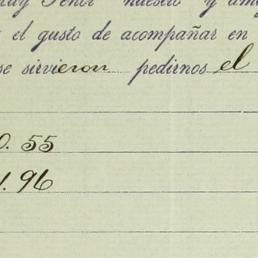 Señor nuestro y
el gusto de acompañar en
se sirvieron pedirnos el
0. 55
1. 96